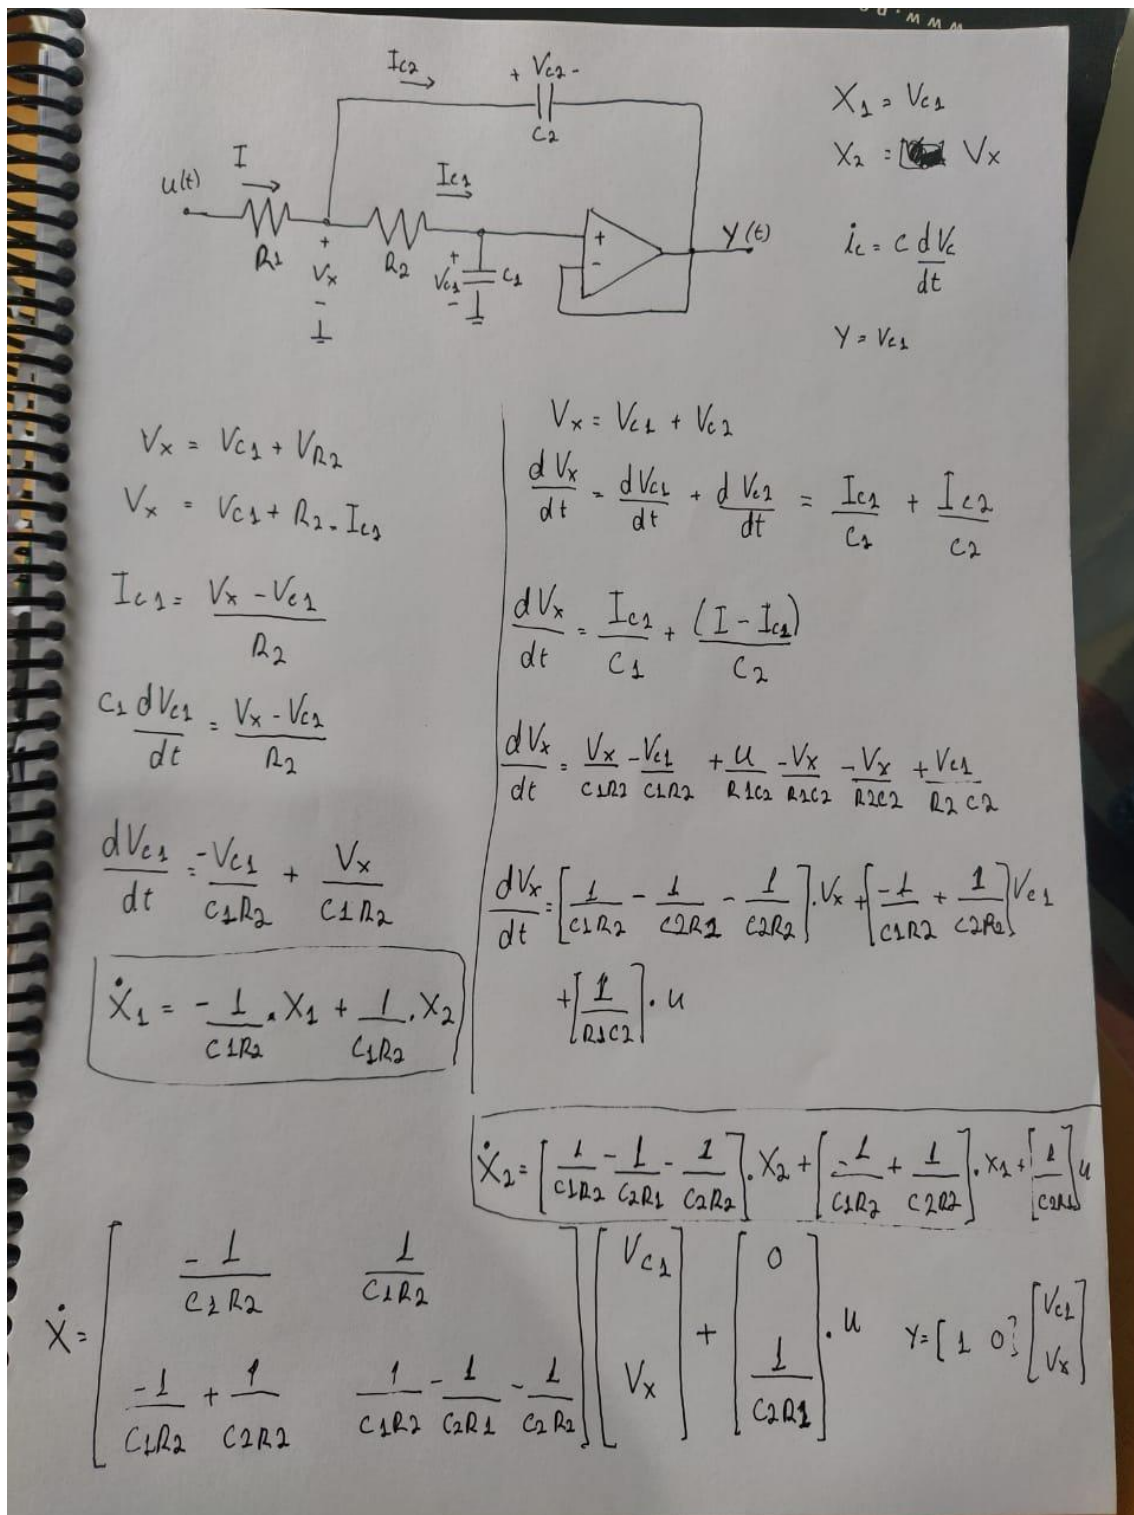 www.
I_{C2} →
+ V_{C2} -
C2
u(t)
I →
R1
+ V_x -
R2
I_{C1} →
+ V_{C1} -
C1
+
-
Y(t)
X_1 = V_{C1}
X_2 = V_x
i_c = C dV_c/dt
Y = V_{C1}
V_x = V_{C1} + V_{R2}
V_x = V_{C1} + R_2 . I_{C1}
I_{C1} = (V_x - V_{C1})/R_2
C_1 dV_{C1}/dt = (V_x - V_{C1})/R_2
dV_{C1}/dt = -V_{C1}/(C1R2) + V_x/(C1R2)
Ẋ_1 = -1/(C1R2) . X_1 + 1/(C1R2) . X_2
V_x = V_{C1} + V_{C2}
dV_x/dt = dV_{C1}/dt + dV_{C2}/dt = I_{C1}/C_1 + I_{C2}/C_2
dV_x/dt = I_{C1}/C1 + (I - I_{C1})/C2
dV_x/dt = V_x/(C1R2) - V_{C1}/(C1R2) + u/(R1C2) - V_x/(R1C2) - V_x/(R2C2) + V_{C1}/(R2C2)
dV_x/dt = [1/(C1R2) - 1/(C2R1) - 1/(C2R2)] . V_x + [-1/(C1R2) + 1/(C2R2)] V_{C1}
+ [1/(R1C2)] . u
Ẋ_2 = [1/(C1R2) - 1/(C2R1) - 1/(C2R2)] . X_2 + [-1/(C1R2) + 1/(C2R2)] . X_1 + [1/(C2R1)] u
Ẋ = [-1/(C1R2) 1/(C1R2); -1/(C1R2) + 1/(C2R2) 1/(C1R2) - 1/(C2R1) - 1/(C2R2)] [V_{C1}; V_x] + [0; 1/(C2R1)] . u
Y = [1 0] [V_{C1}; V_x]